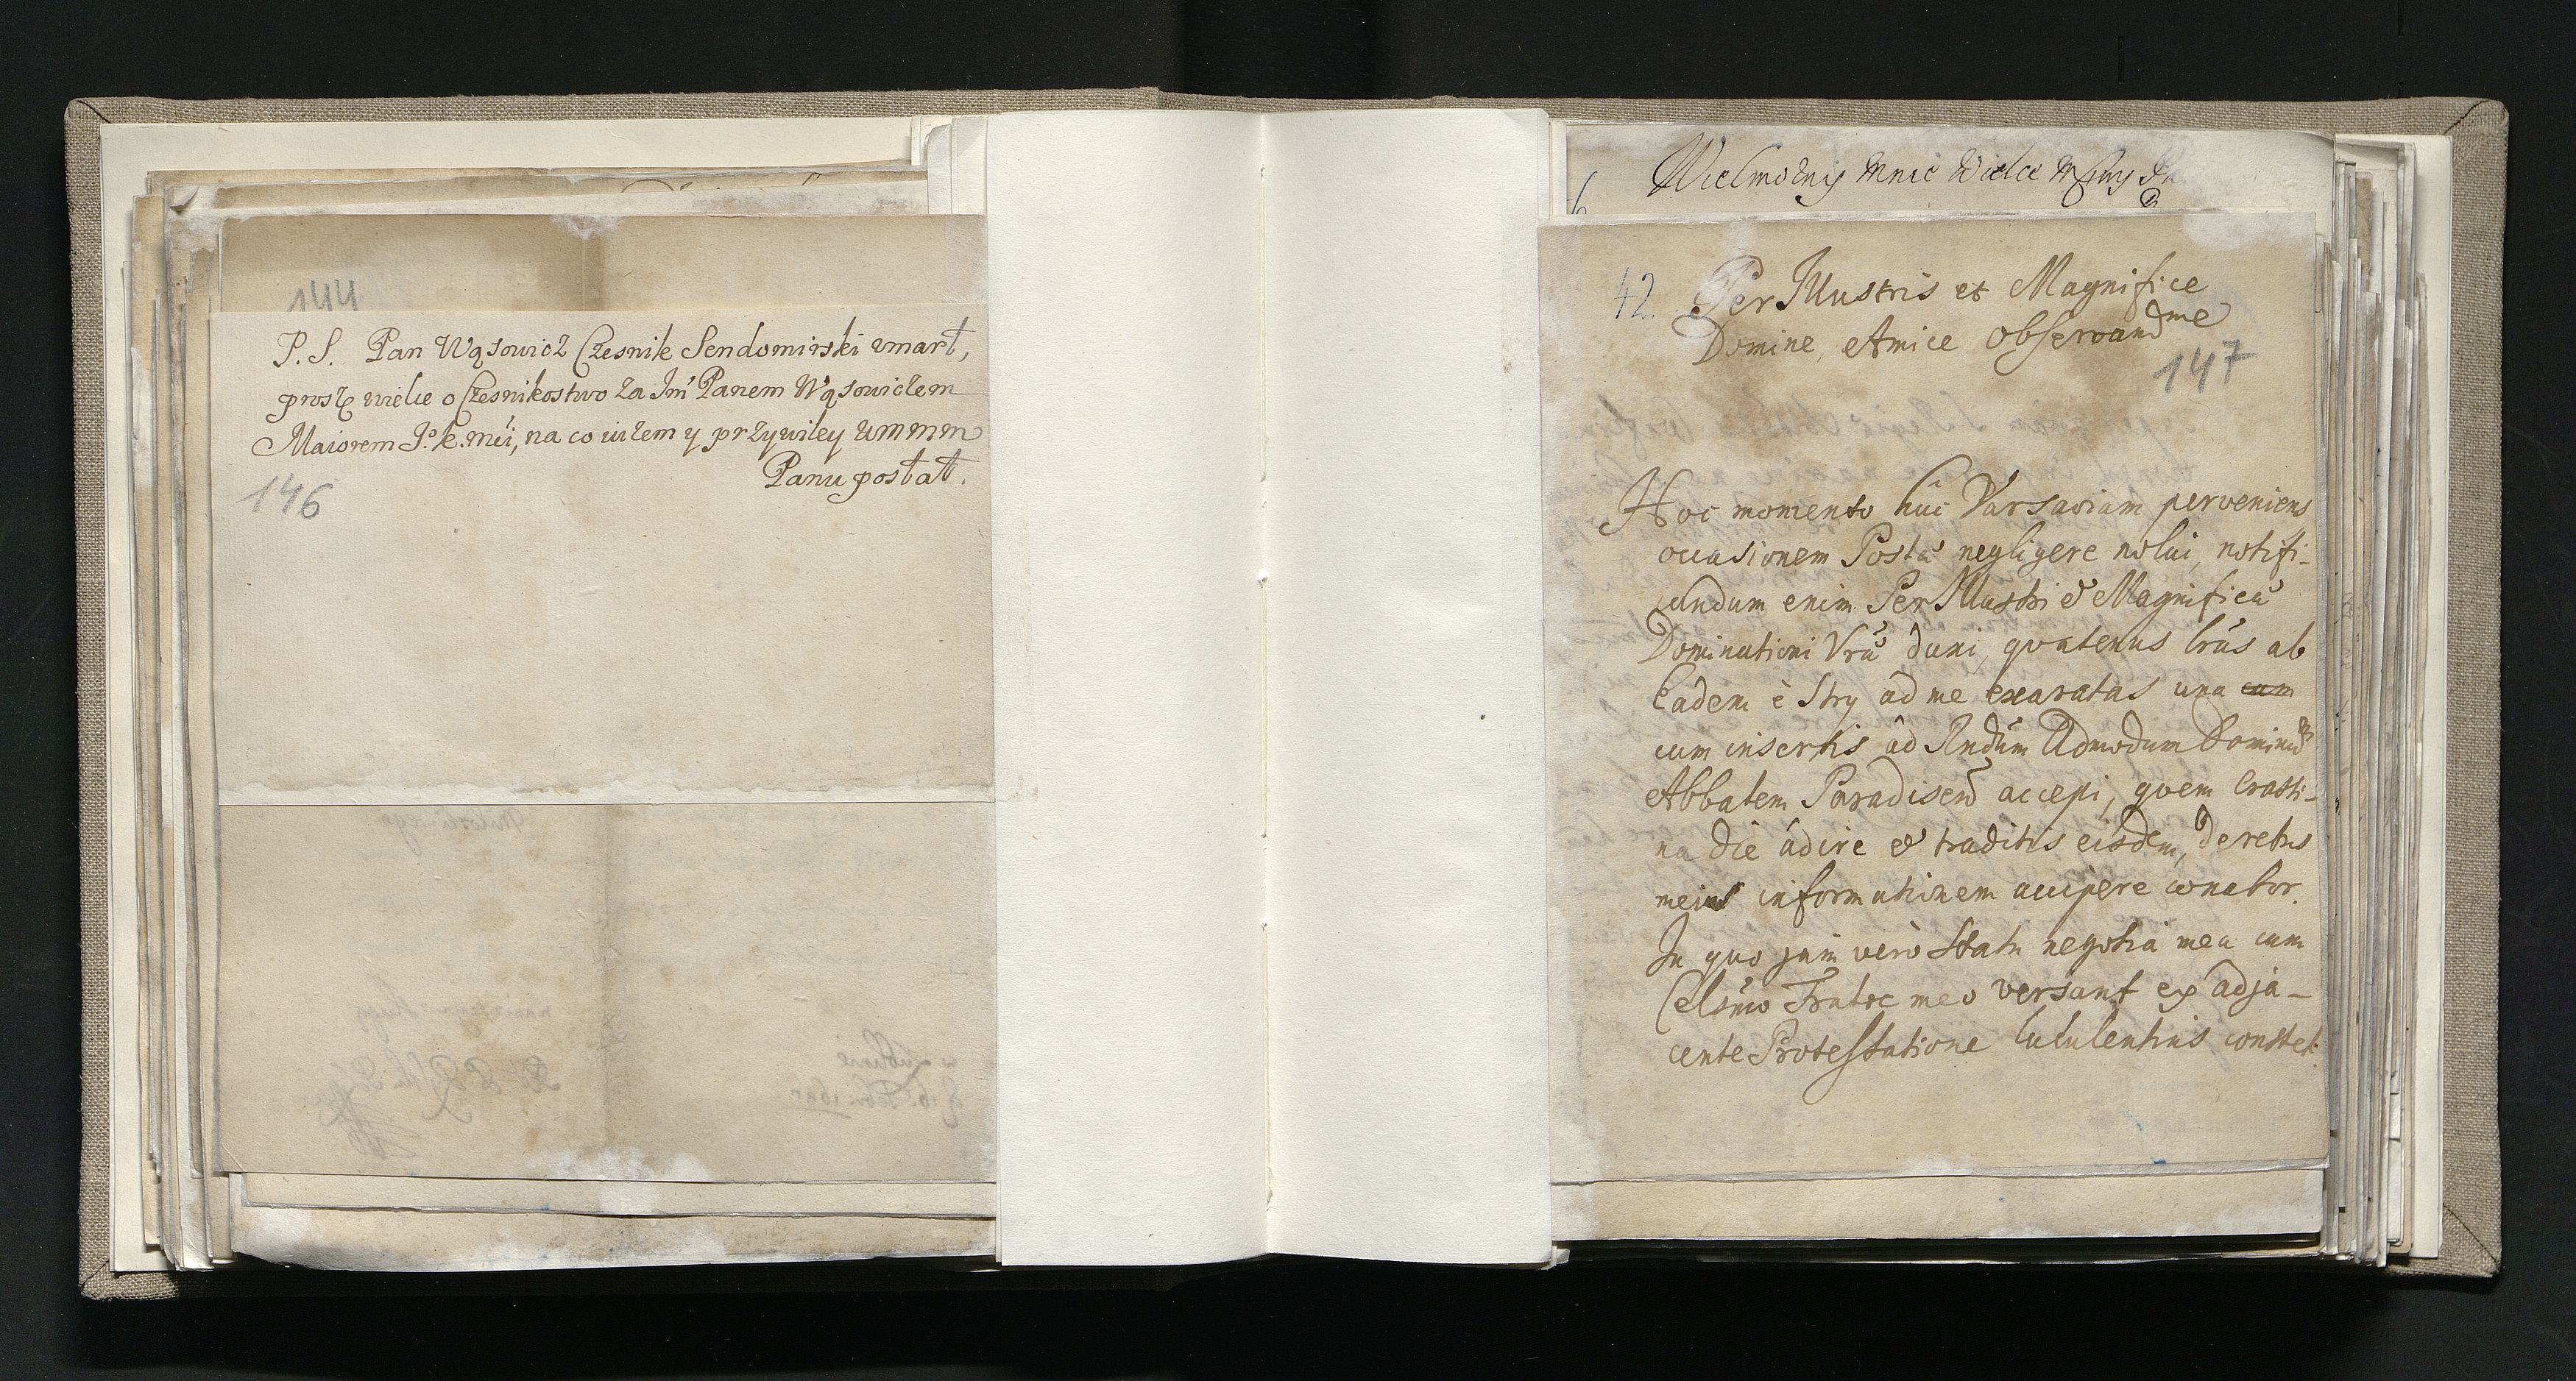 144
P. S. Pan Wąsowicz Czesnik Sendomirski vmarł,
proszę wielce o Czesnikostwo za Im Panem Wąsowiczem
Maiorem J. k. mći, na co iużem y przywiley wmmm
Panu posłał.
146
Wielmożny Mnie Wielce
42. Per Illustris et Magnifice
Domine, Amice Observandme
147
Hoc momento huc Varsaviam perveniens
occasionem Posta negligere nolui, notifi-
candum enim Per Illustri & Magnifica
Dominationi Vra duxi, qvatenus lras ab
Eadem è Stry ad me exaratas una cum
cum insertis ad Rndum Admodum Dominum
Abbatem Paradisen accepi, qvem Crasti-
na die adire & traditis eisdem, de rebus
meis informationem accipere conabor.
In quo jam vero Statu negotia mea cum
Celsmo Fratre meo versant ex adja-
cente Protestatione luculentius constet.